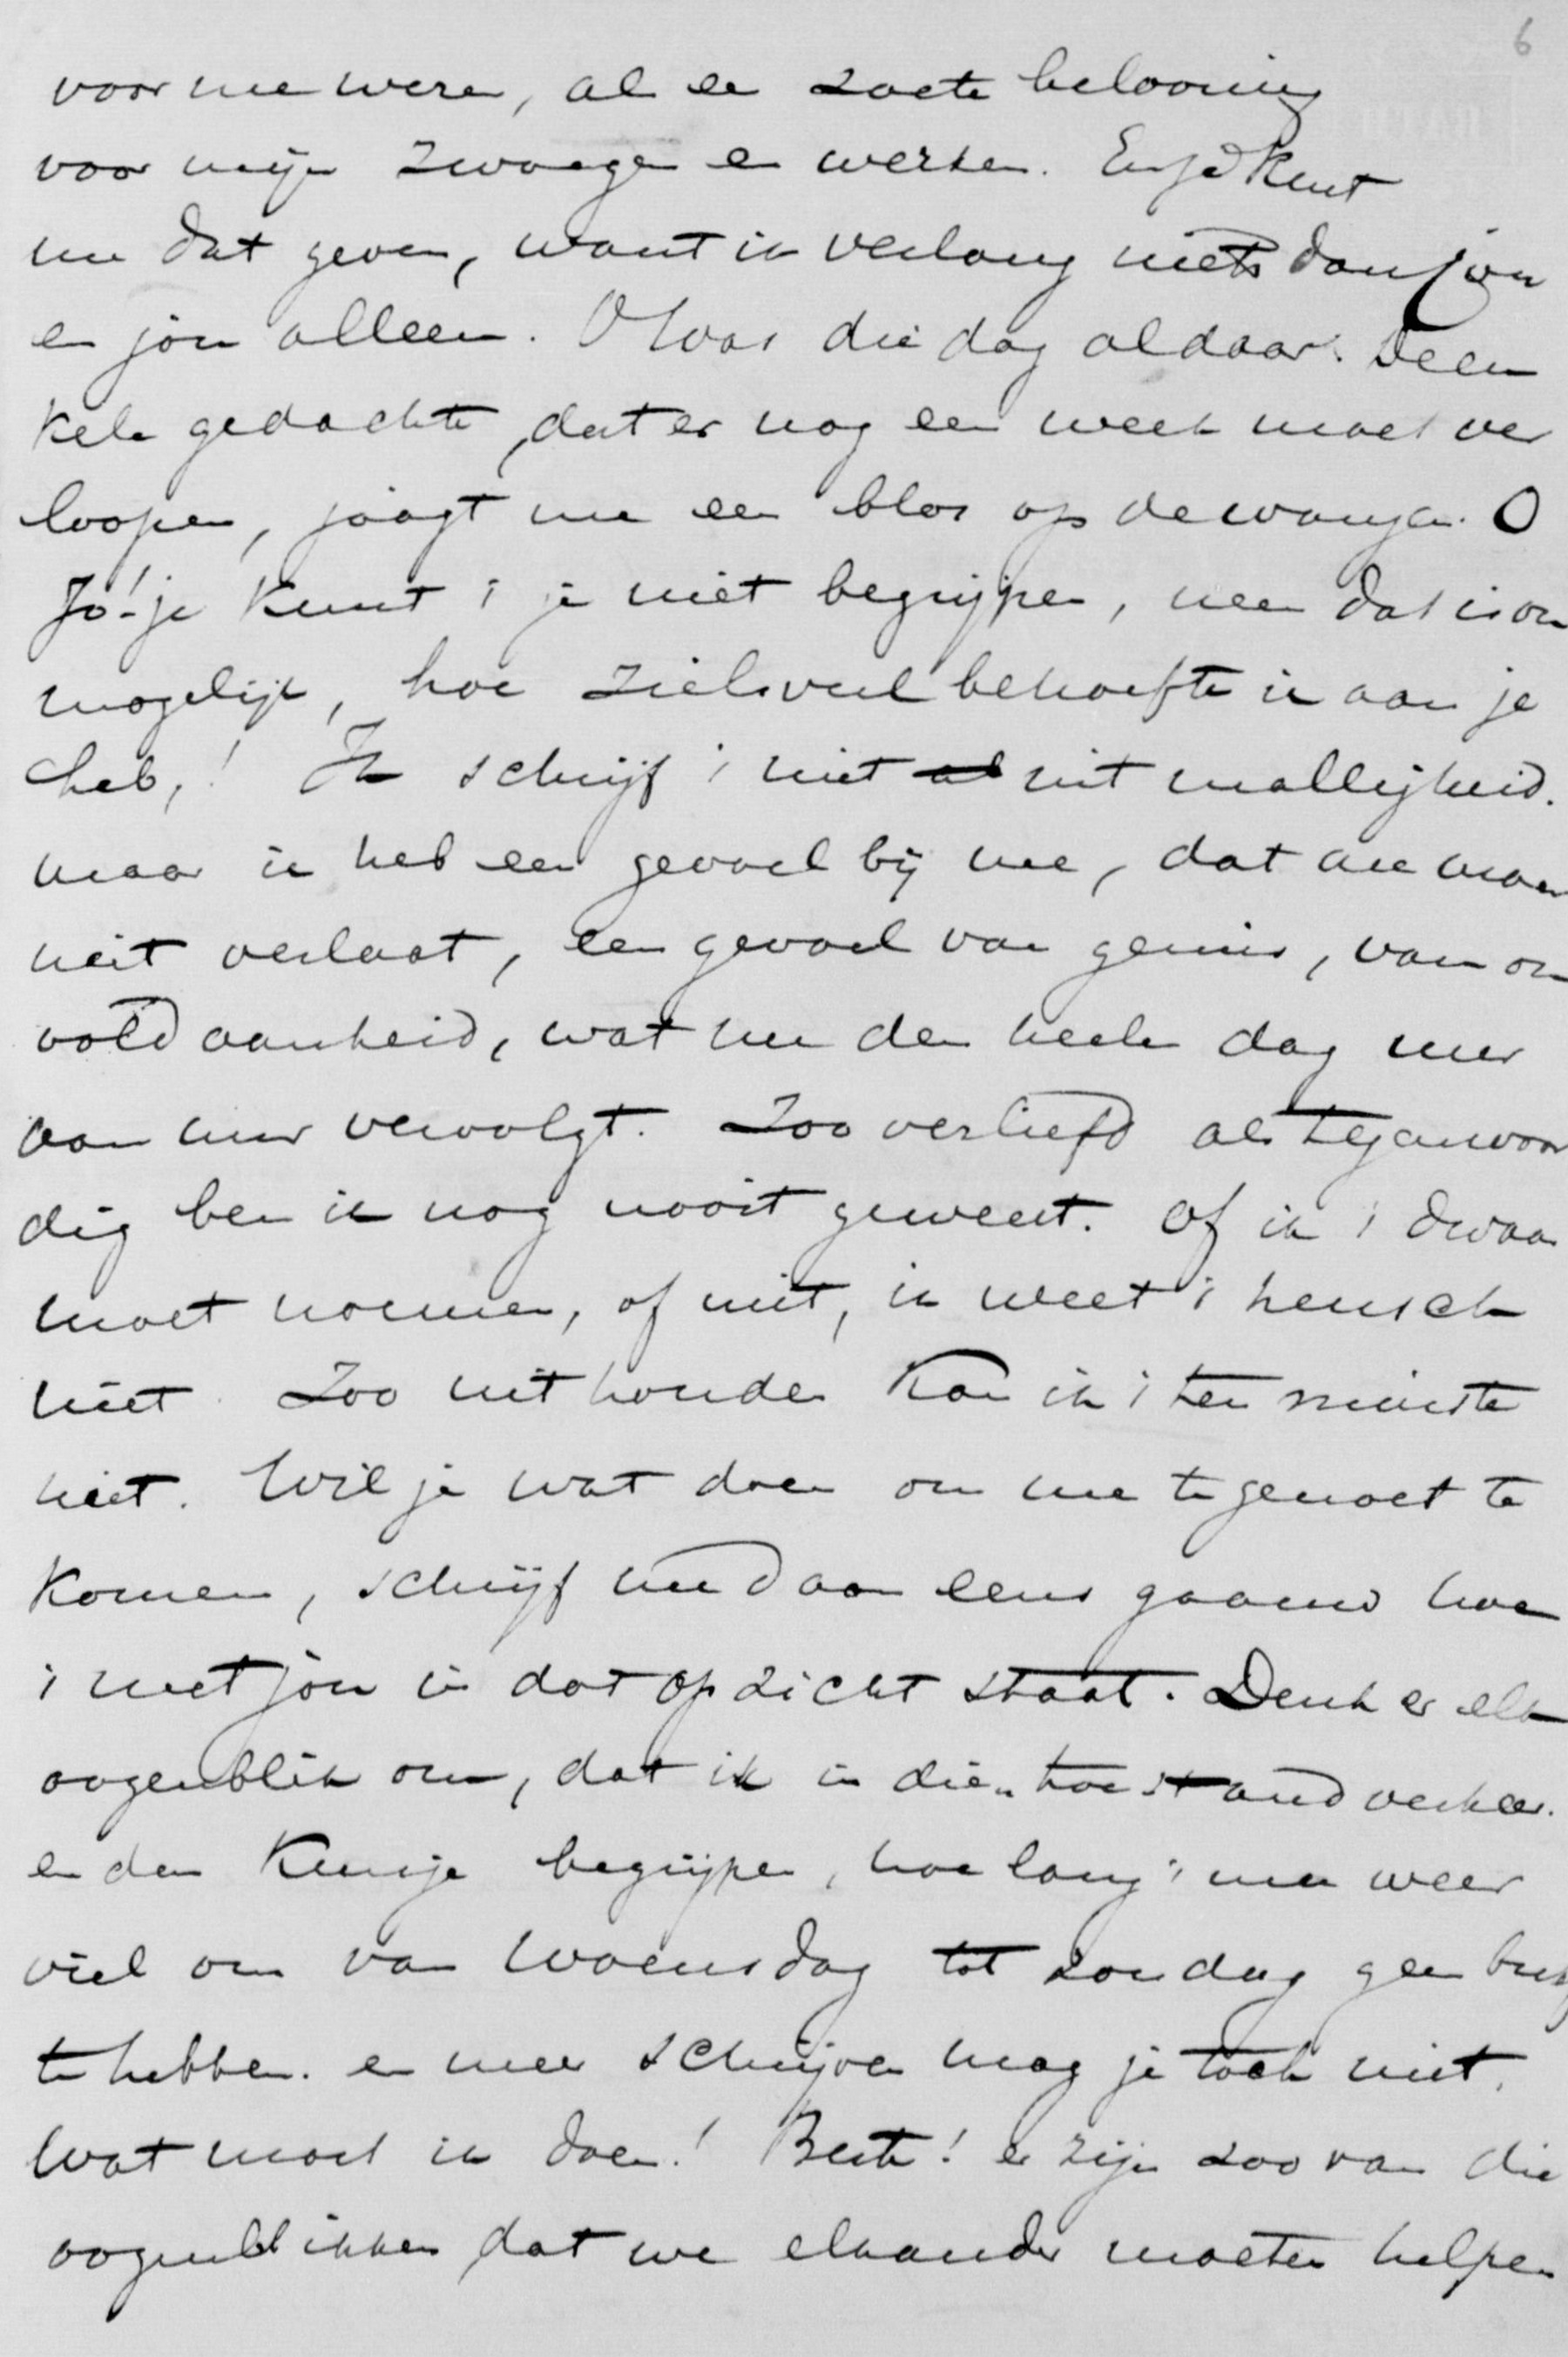 6
voor me weze, als ee zoete belooning
voor mijn zwoegen en werken. En jij kunt
me dat geven, want ik verlang niets dan jou
en jou alleen. O was die dag al daar. De en
kele gedachte, dat er nog een week moet ver
loopen, jaagt me een blos op de wangen. O
Jo!- je kunt 't je niet begrijpen, neen dat is on
mogelijk, hoe zielsveel behoefte ik aan je
heb,! Ik schrijf 't niet uit malligheid.
maar ik heb een gevoel bij me, dat me maar
niet verlaat, een gevoel van gemis, van on
voldaanheid, wat me den heelen dag uur
aan uur vervolgt. Zoo verliefd als tegenwoor
dig ben ik nog nooit geweest. Of ik 't dwaas
moet noemen, of niet, ik weet 't heusch
niet. Zoo uithouden kan ik 't ten minste
niet. Wil je wat doen om me tegemoet te
komen, schrijf me daar eens gaauw hoe
't met jou in dat opzicht staat. Denk er elk
oogenblik om, dat ik in dien toestand verkeer.
en dan kun je begrijpen, hoe lang 't me weer
viel om van Woensdag tot Zondag geen brief
te hebben. en meer schrijven mag je toch niet.
Wat moet ik doen! Beste! er zijn zoo van die
oogenblikken dat we elkander moeten helpen